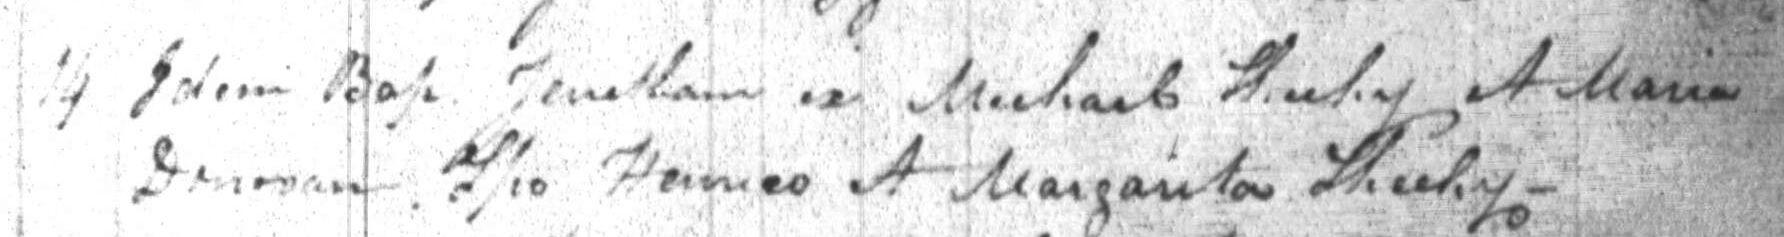 14 Idem Bap. ex Michaele Sheehy et Maria
Donovan. Spo Henrico et Margarita Sheehy -